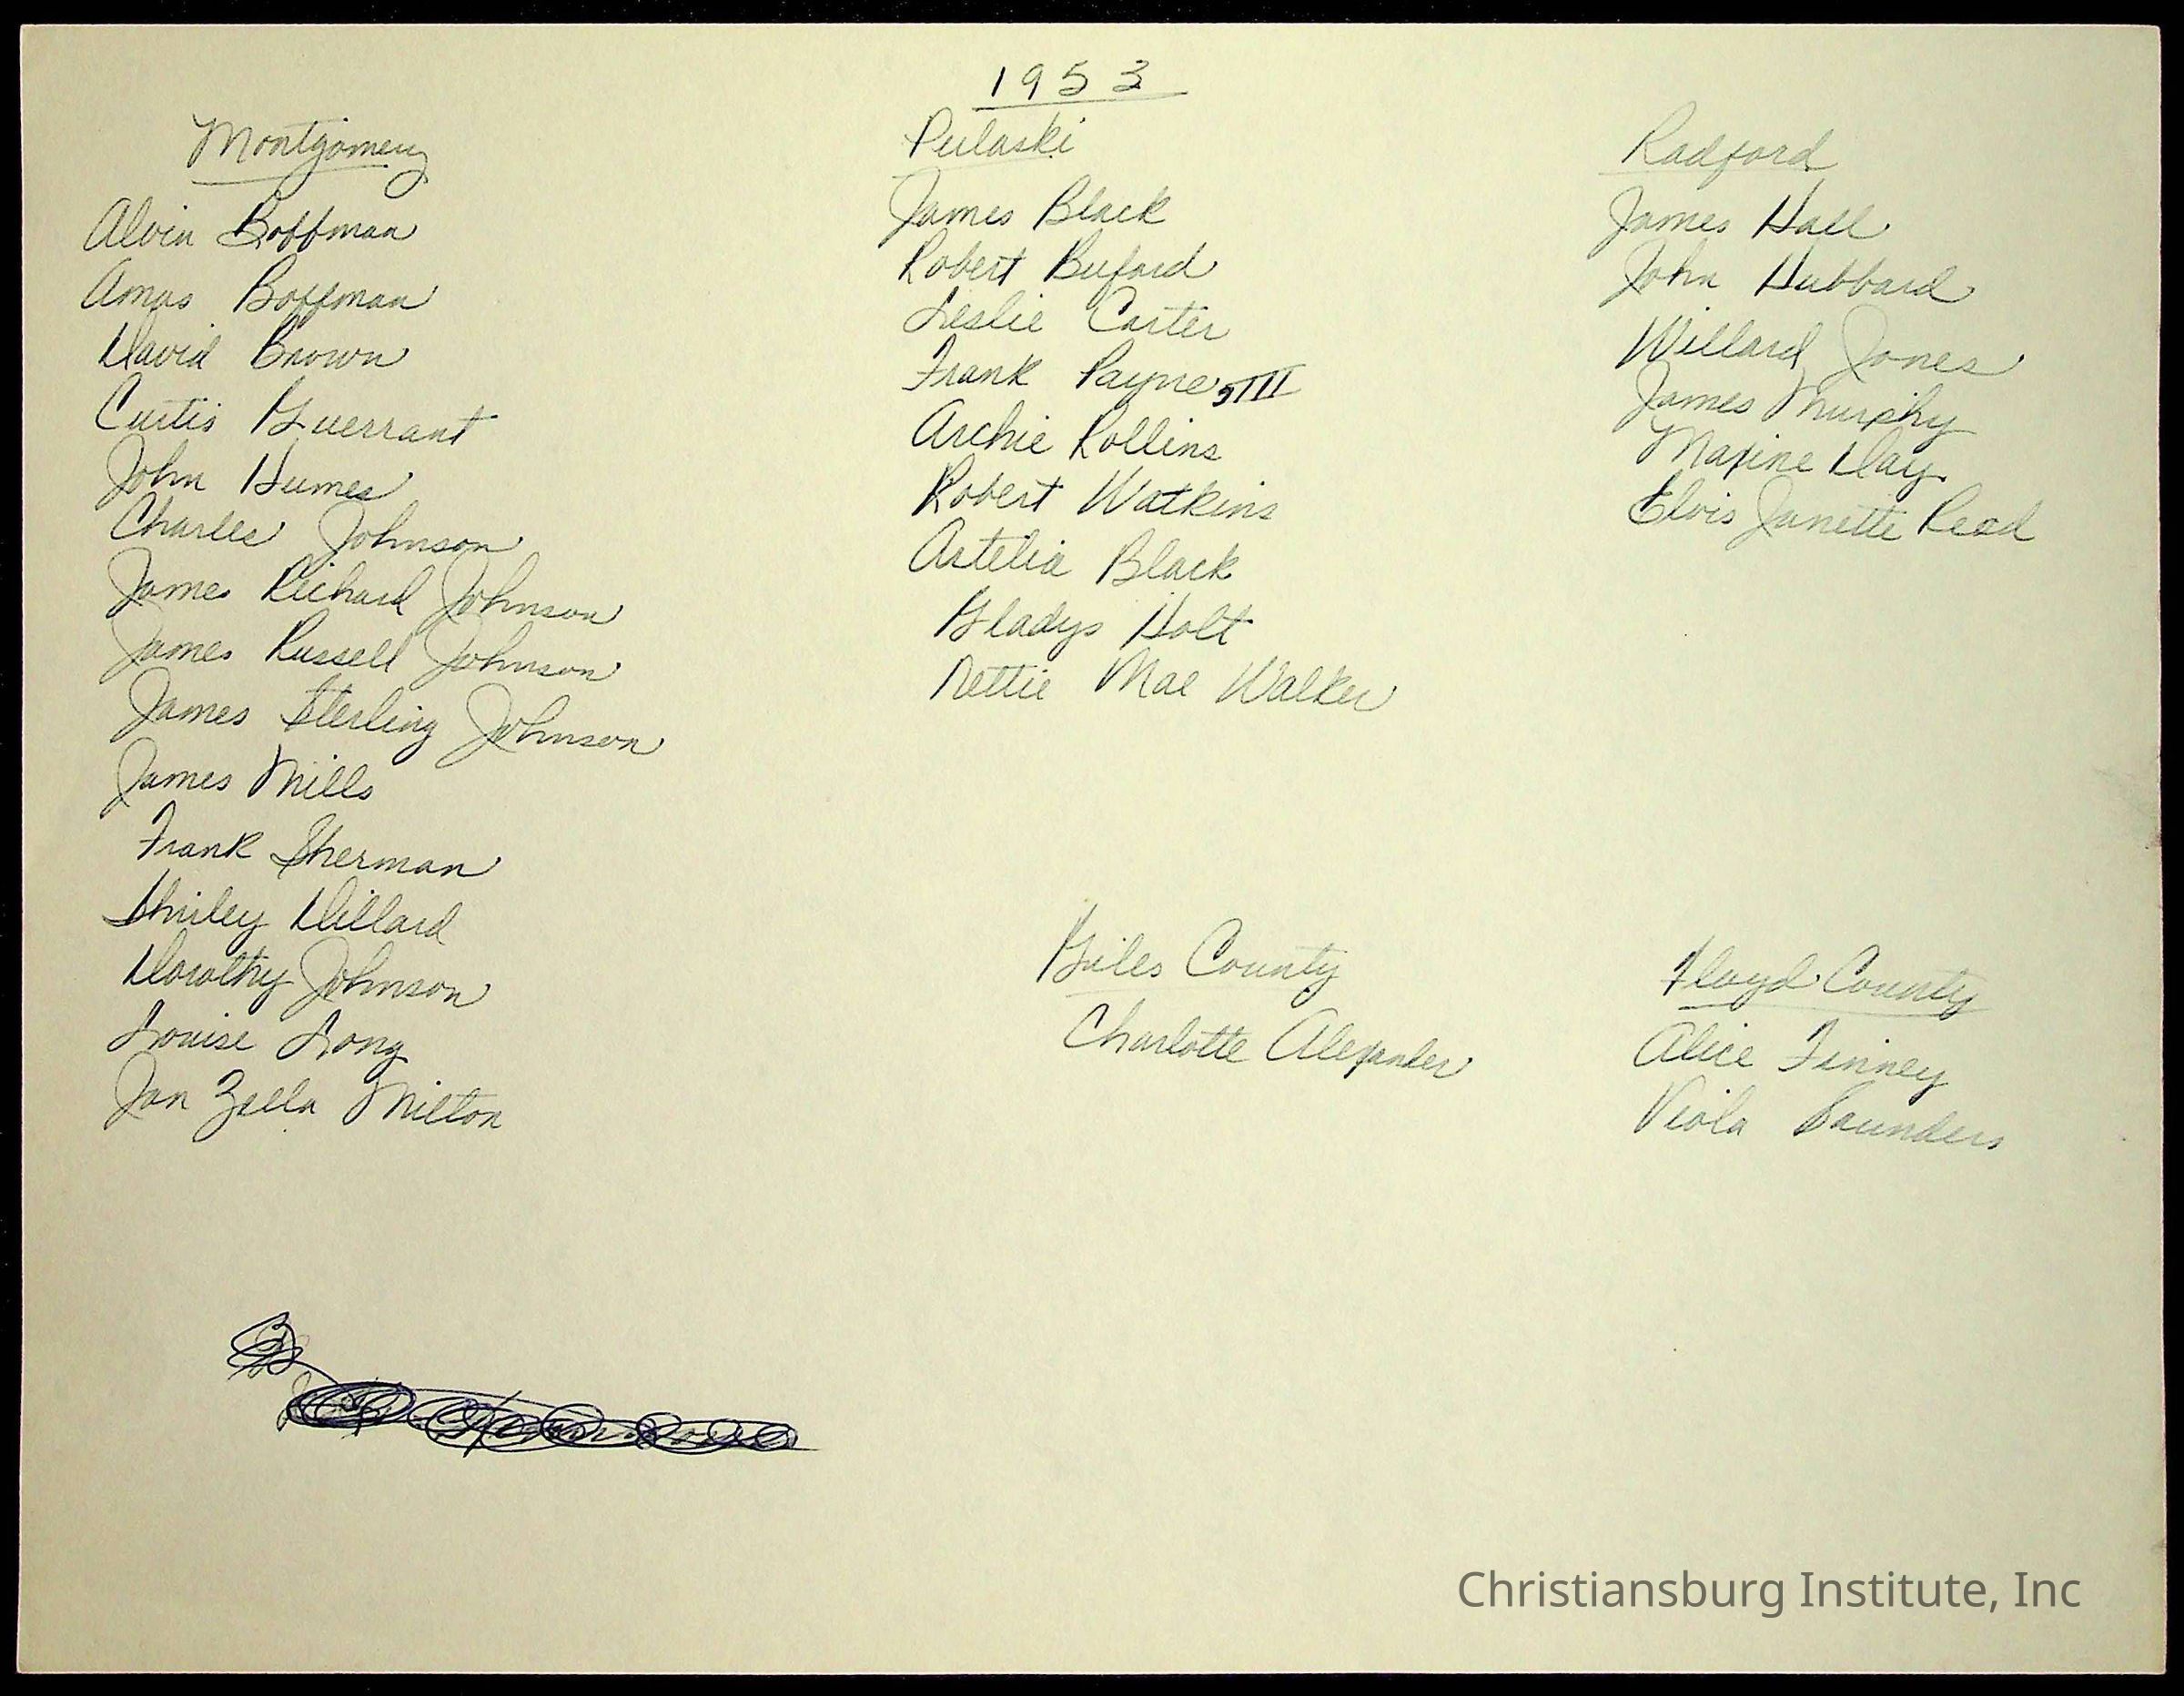 1953
Montgomery
Alvin Boffman
Amos Boffman
David Brown
Curtis Guerrant
John Humes
Charles Johnson
James Richard Johnson
James Russell Johnson
James Sterling Johnson
James Mills
Frank Sherman
Shirley Dillard
Dorothy Johnson
Louise Long
Jan Zella Milton
Pulaski
James Black
Robert Buford
Leslie Carter
Frank Payne, III
Archie Rollins
Robert Watkins
Artelia Black
Gladys Holt
Nettie Mae Walker
Radford
James Hall
John Hubbard
Willard Jones
James Murphy
Maxine Day
Elvis Janette Reed
Giles County
Charlotte Alexander
Floyd County
Alice Finney
Viola Saunders
Christiansburg Institute, Inc